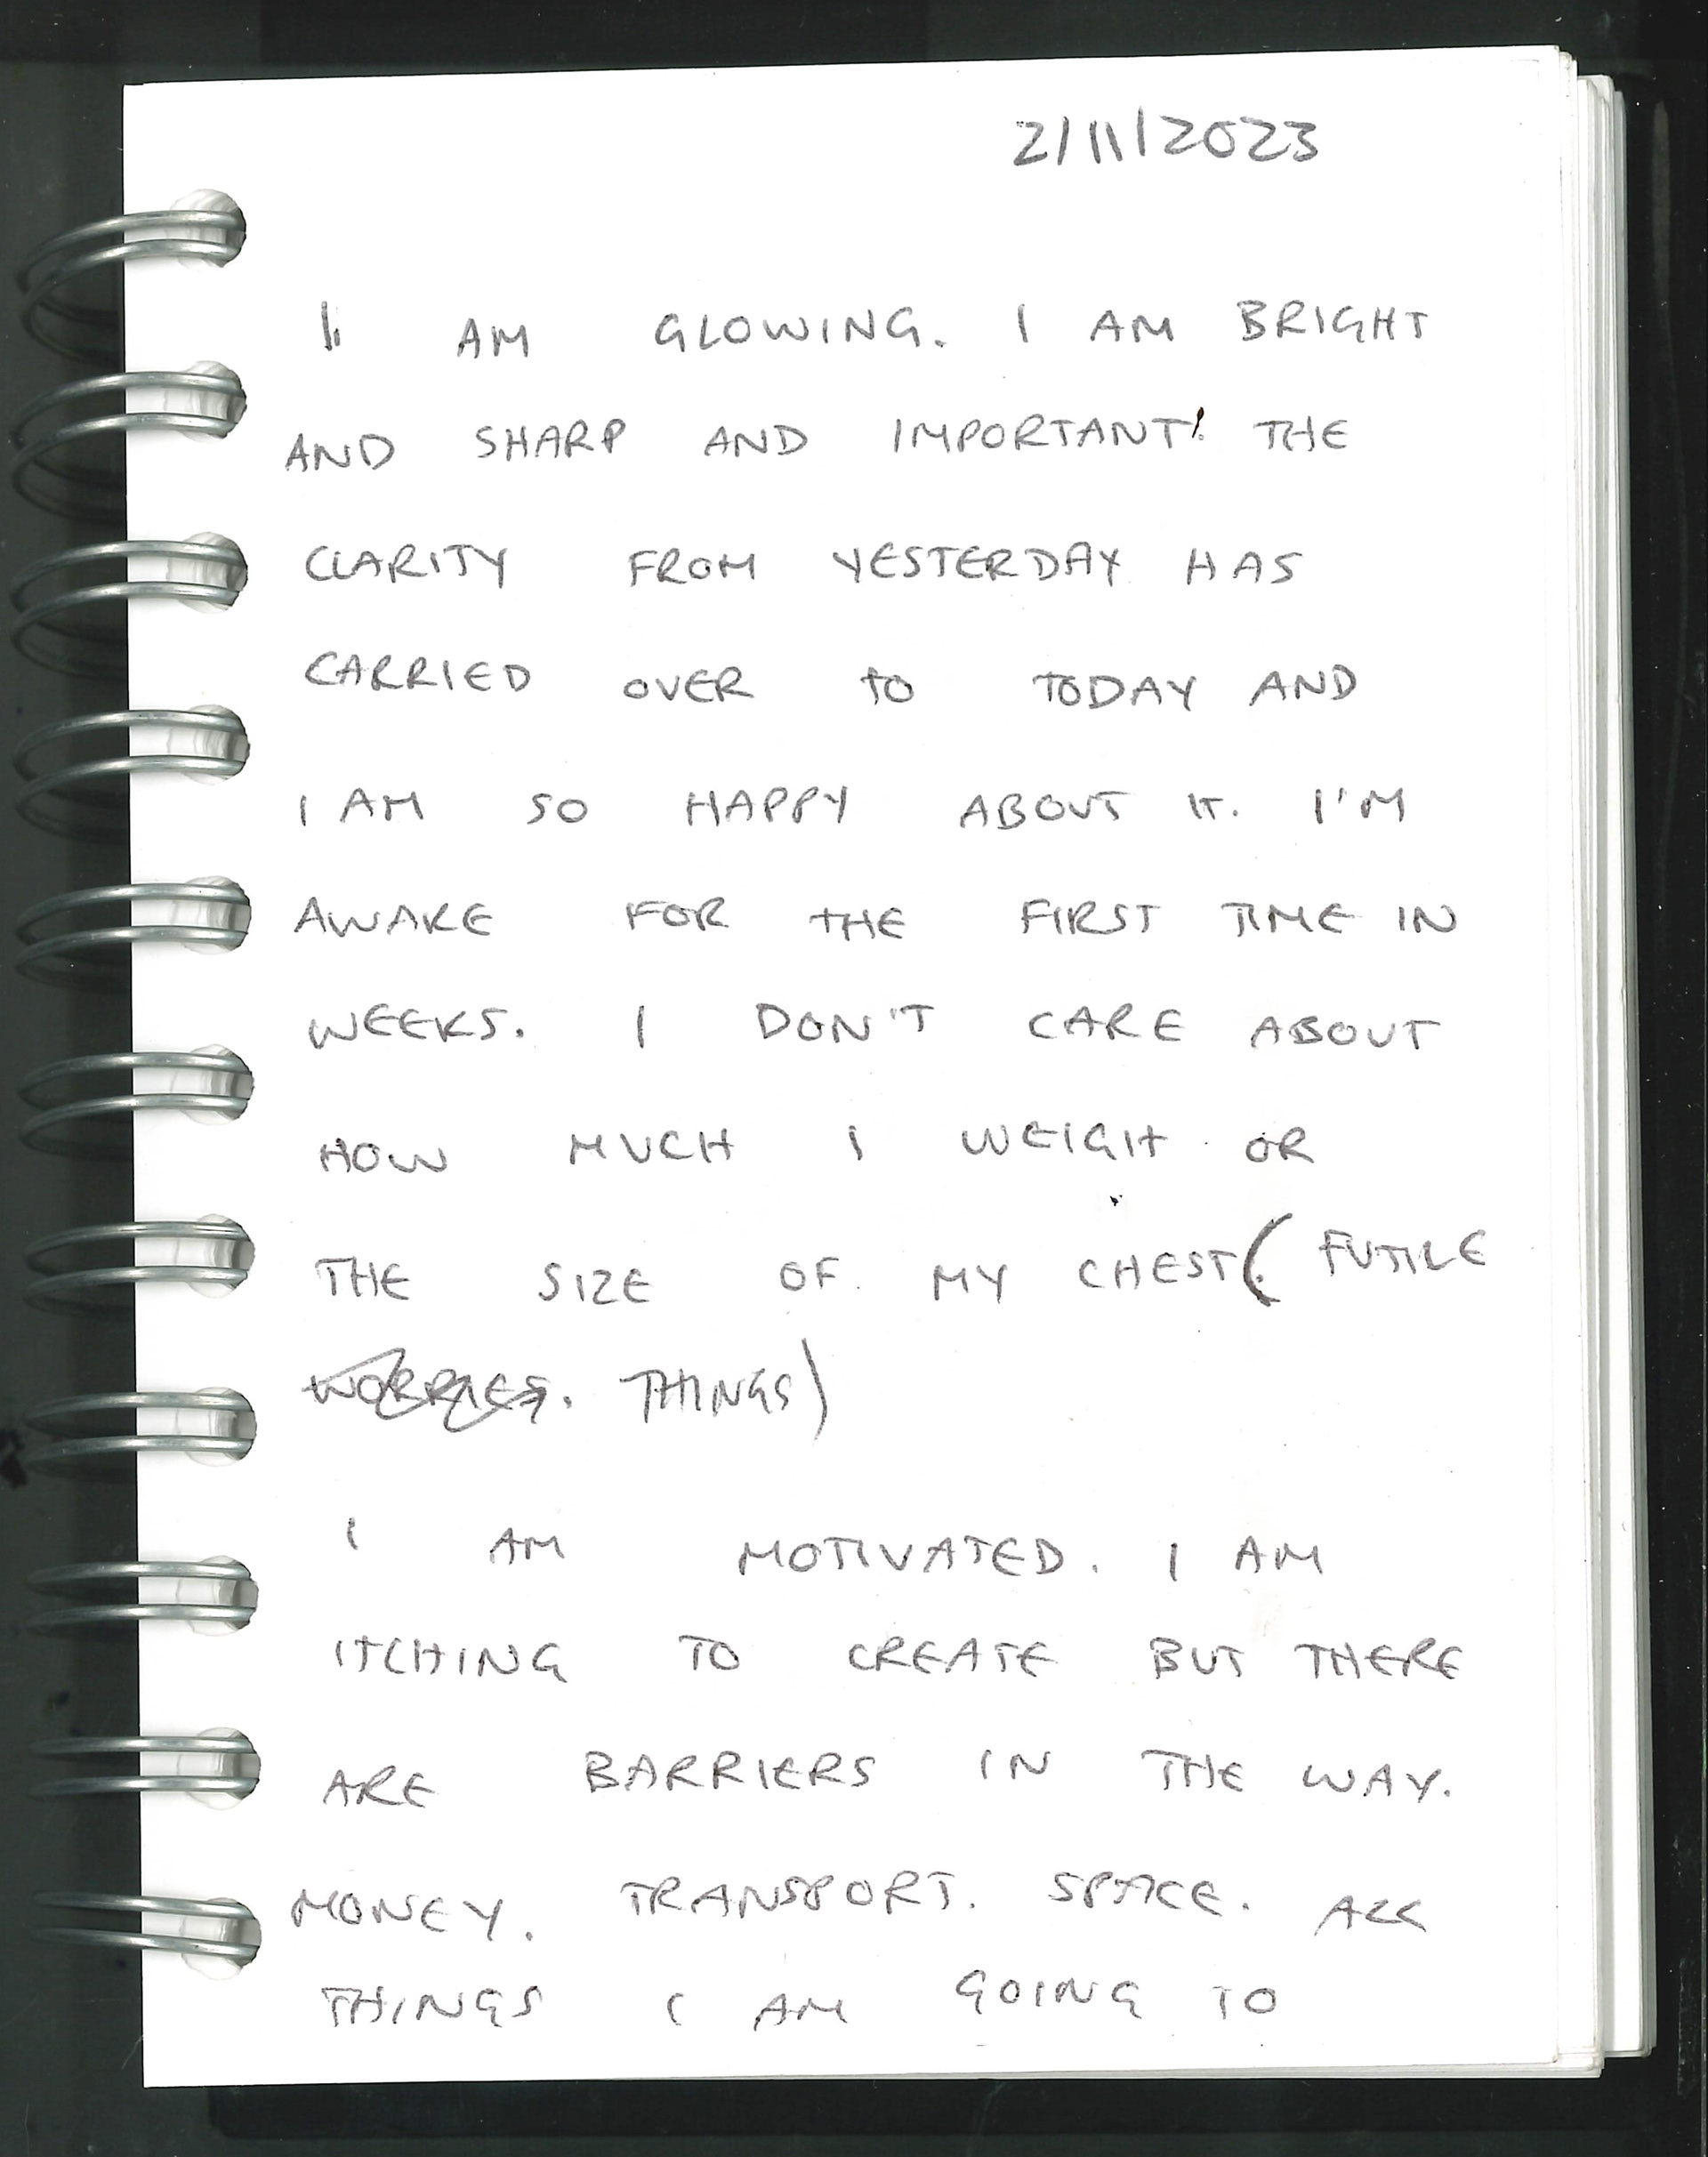 2/11/2023
I AM GLOWING. I AM BRIGHT
AND SHARP AND IMPORTANT! THE
CLARITY FROM YESTERDAY HAS
CARRIED OVER TO TODAY AND
I AM SO HAPPY ABOUT IT. I'M
AWAKE FOR THE FIRST TIME IN
WEEKS. I DON'T CARE ABOUT
HOW MUCH I WEIGH OR
THE SIZE OF MY CHEST. (FUTILE
WORRIES. THINGS)
I AM MOTIVATED. I AM
ITCHING TO CREATE BUT THERE
ARE BARRIERS IN THE WAY.
MONEY. TRANSPORT. SPACE. ALL
THINGS I AM GOING TO